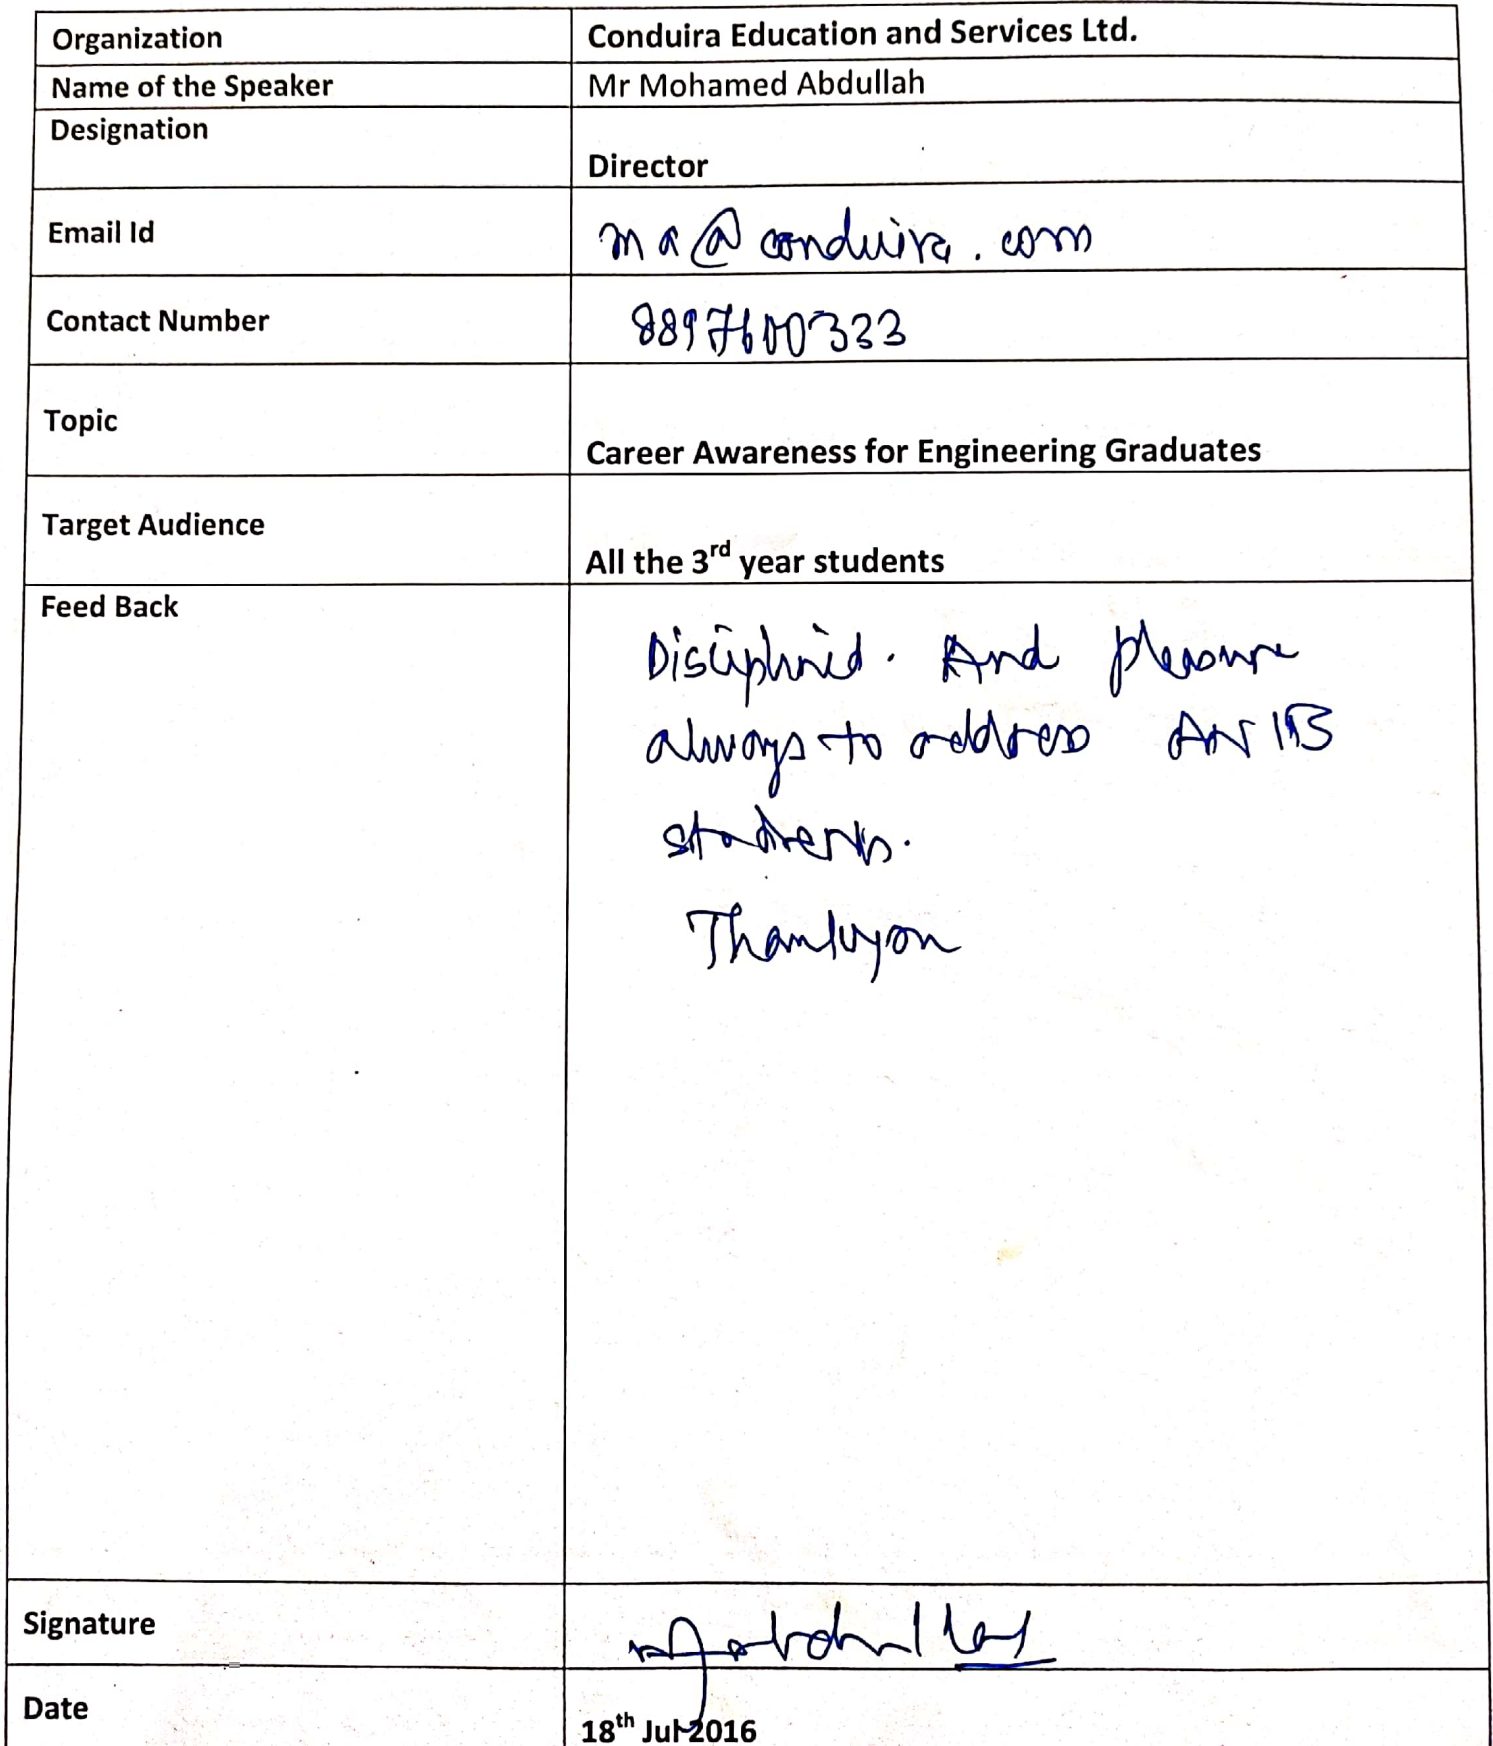 Organization Conduira Education and Services Ltd.
Name of the Speaker Mr Mohamed Abdullah
Designation
Director
Email Id ma@conduira.com
Contact Number 8897600333
Topic
Career Awareness for Engineering Graduates
Target Audience
All the 3rd year students
Feed Back
Disciplined. And pleasure
always to address
students.
Thankyou
Signature
Date
18th Jul-2016